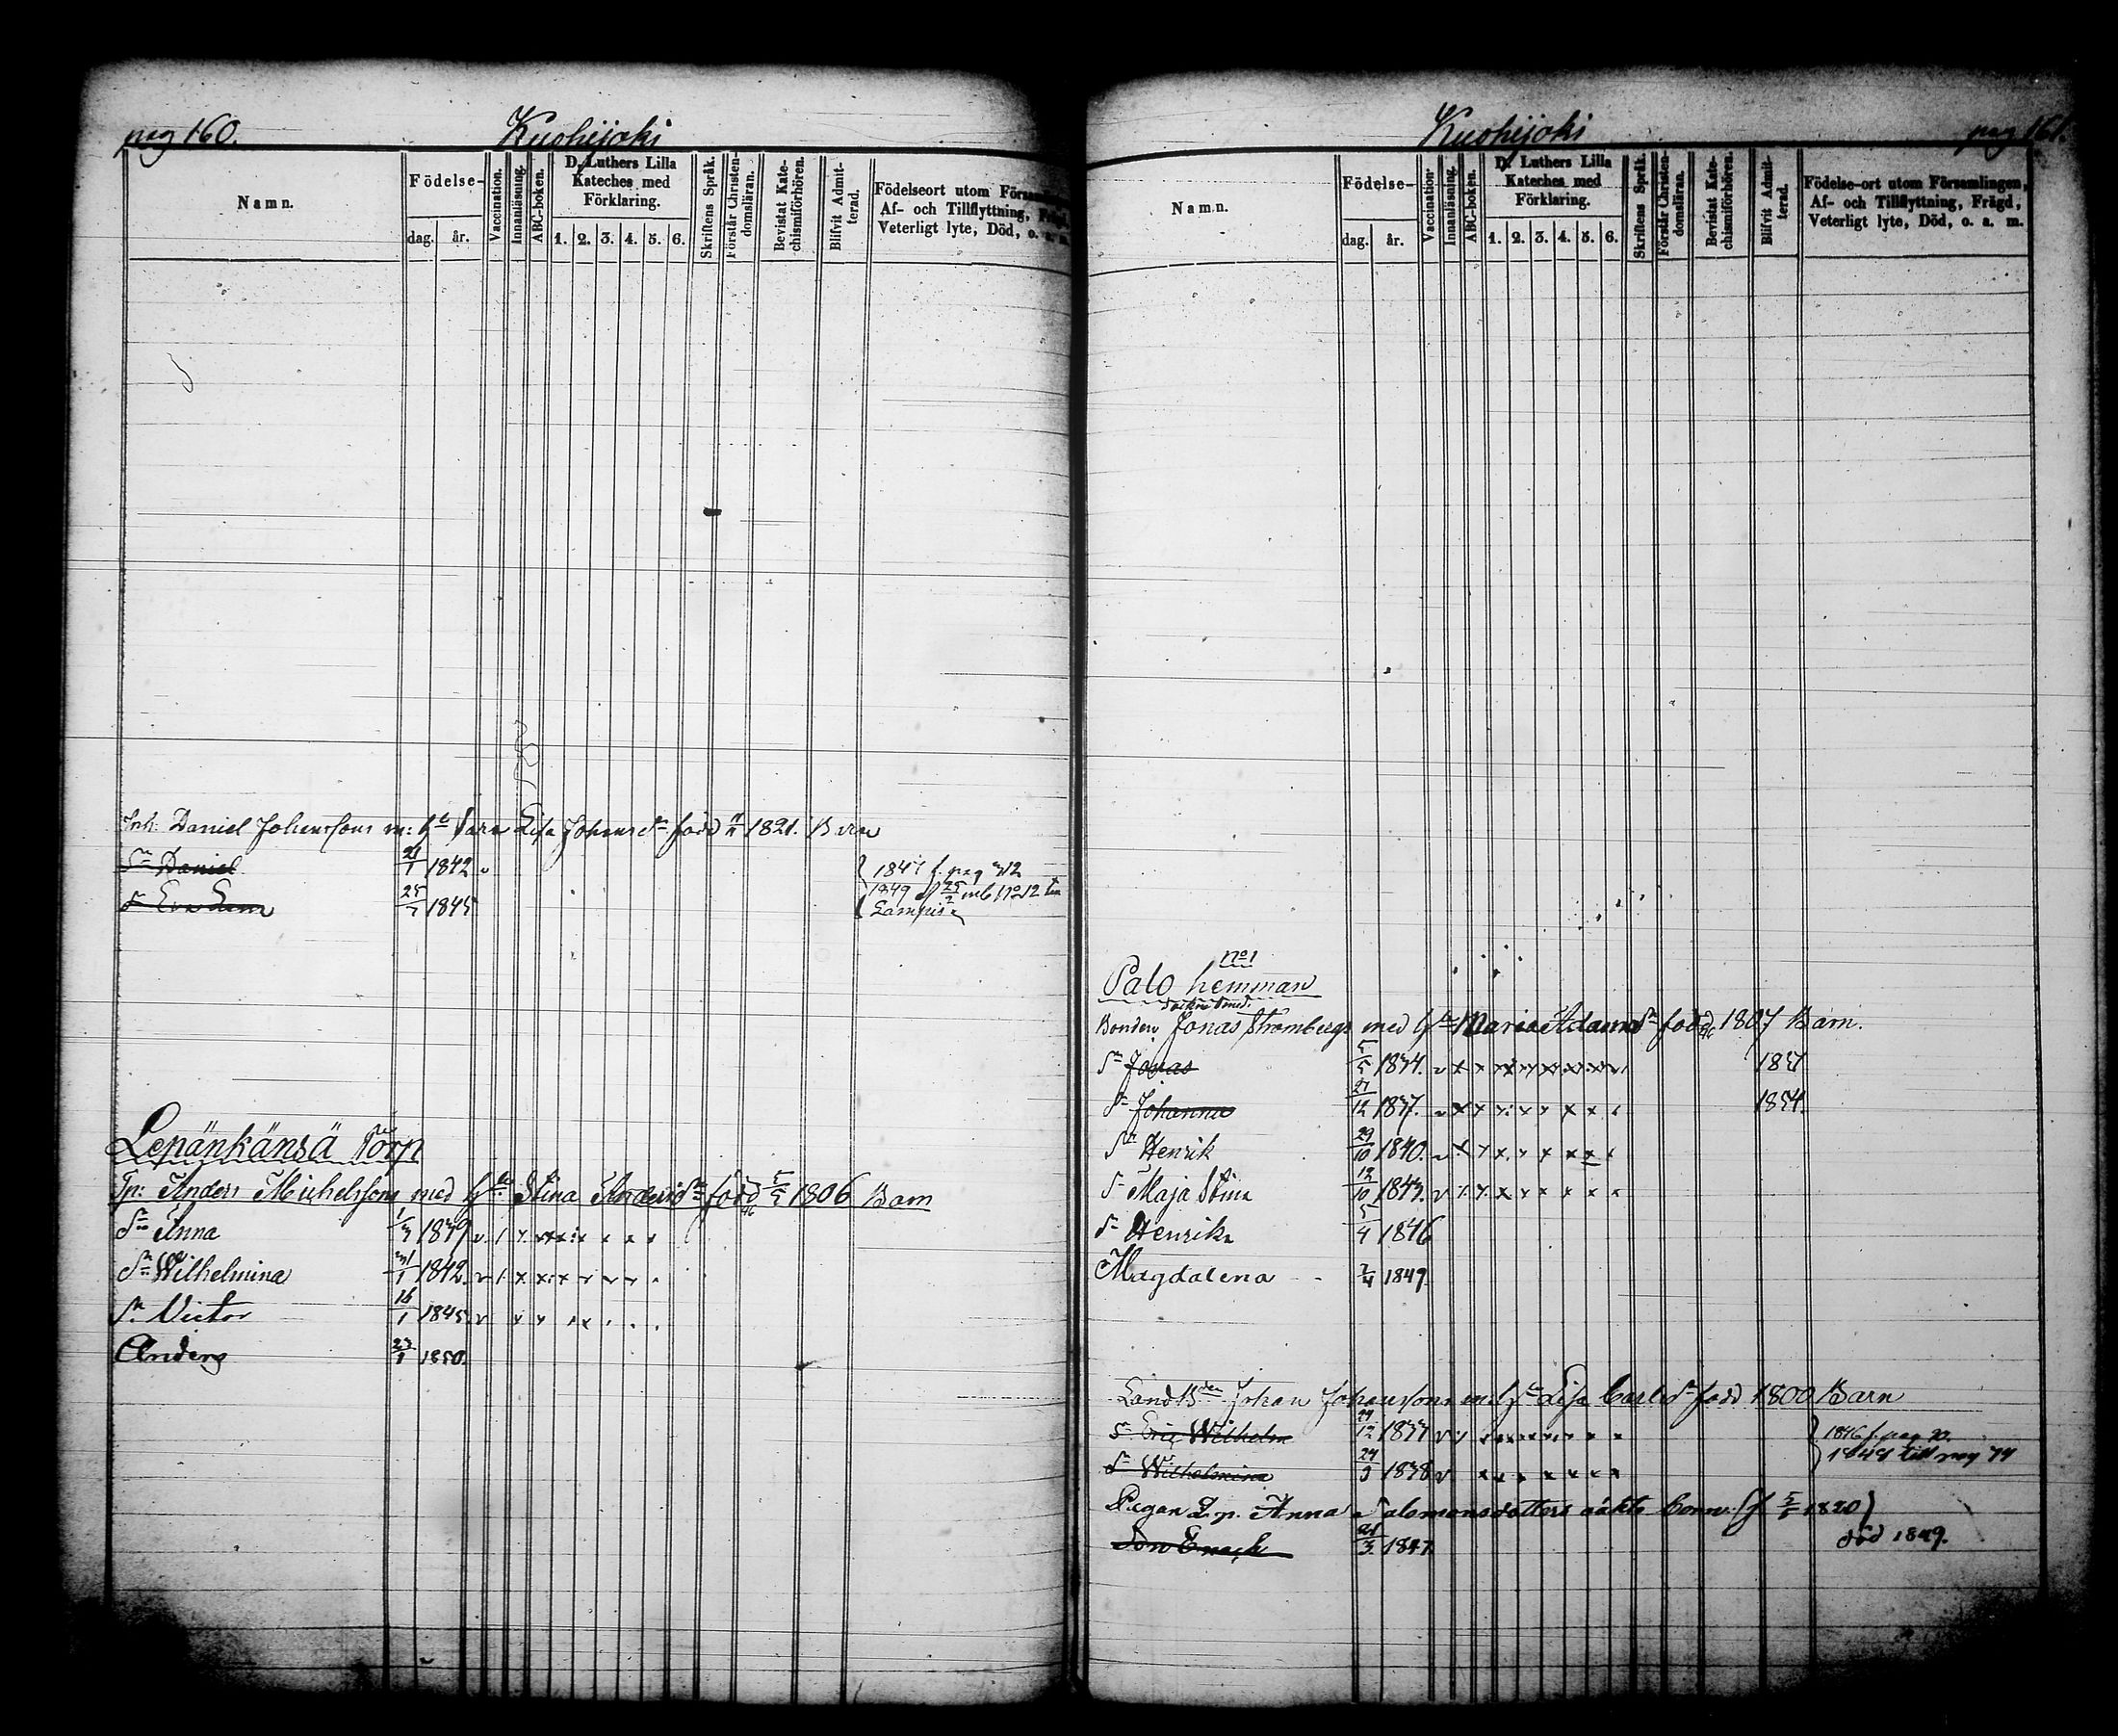 pag 160. Kuohijoki
Namn. Födelse- dag. år. Vaccination. Innanläsning. ABC-boken. D. Luthers Lilla Kateches med Förklaring. 1. 2. 3. 4. 5. 6. Skriftens Språk. Förstår Christendomsläran. Bevistat Katechismiförhören. Blifvit Admitterad. Födelseort utom Församlingen, Af- och Tillflyttning, Frägd, Veterligt lyte, Död, o. a. m.
Inh: Daniel Johanssons m: hu Sara Lisa Johansdr född 1821. Barn
Sn Daniel 21/1 1842 v 1847 f. pag 312
dr Eva Lena 25/7 1845 1849 25/2 mb No 12 till
Lampis
Lepänkänsä Torp
Tp: Anders Michelssons med hu Stina Andersdr född 5/5 1806 Barn
dr Anna 1/3 1839
dr Wilhelmina 31/1 1842.
Sn Victor 16/1 1845
Anders 23/1 1850.
Kuohijoki pag 161.
Namn. Födelse- dag. år. Vaccination. Innanläsning. ABC-boken. D. Luthers Lilla Kateches med Förklaring. 1. 2. 3. 4. 5. 6. Skriftens Språk. Förstår Christendomsläran. Bevistat Katechismiförhören. Blifvit Admitterad. Födelse-ort utom Församlingen, Af- och Tillflyttning, Frägd, Veterligt lyte, Död, o. a. m.
No 1
Palo hemman
Bonden Jonas Strömbergs med hu Maria Adamsdr född 1807 Barn.
Sn Jonas 5/5 1834. 1851
dr Johanna 21/12 1837. 1854.
Sn Henrik 29/10 1840.
dr Maja Stina 12/10 1843.
dr Henrika 5/4 1846
Magdalena 2/4 1849.
LandBden Johan Johanssons m: hu Lisa Carlsdr född 1800 Barn
Sn Eric Wilhelm 29/12 1834 1846 f. pag
dr Wilhelmina 24/9 1838 1848 till pag 74
Pigan Anna Salomonsdotters oäkta barn (f 5/5 1820)
Son Enoch 25/3 1847. död 1849.